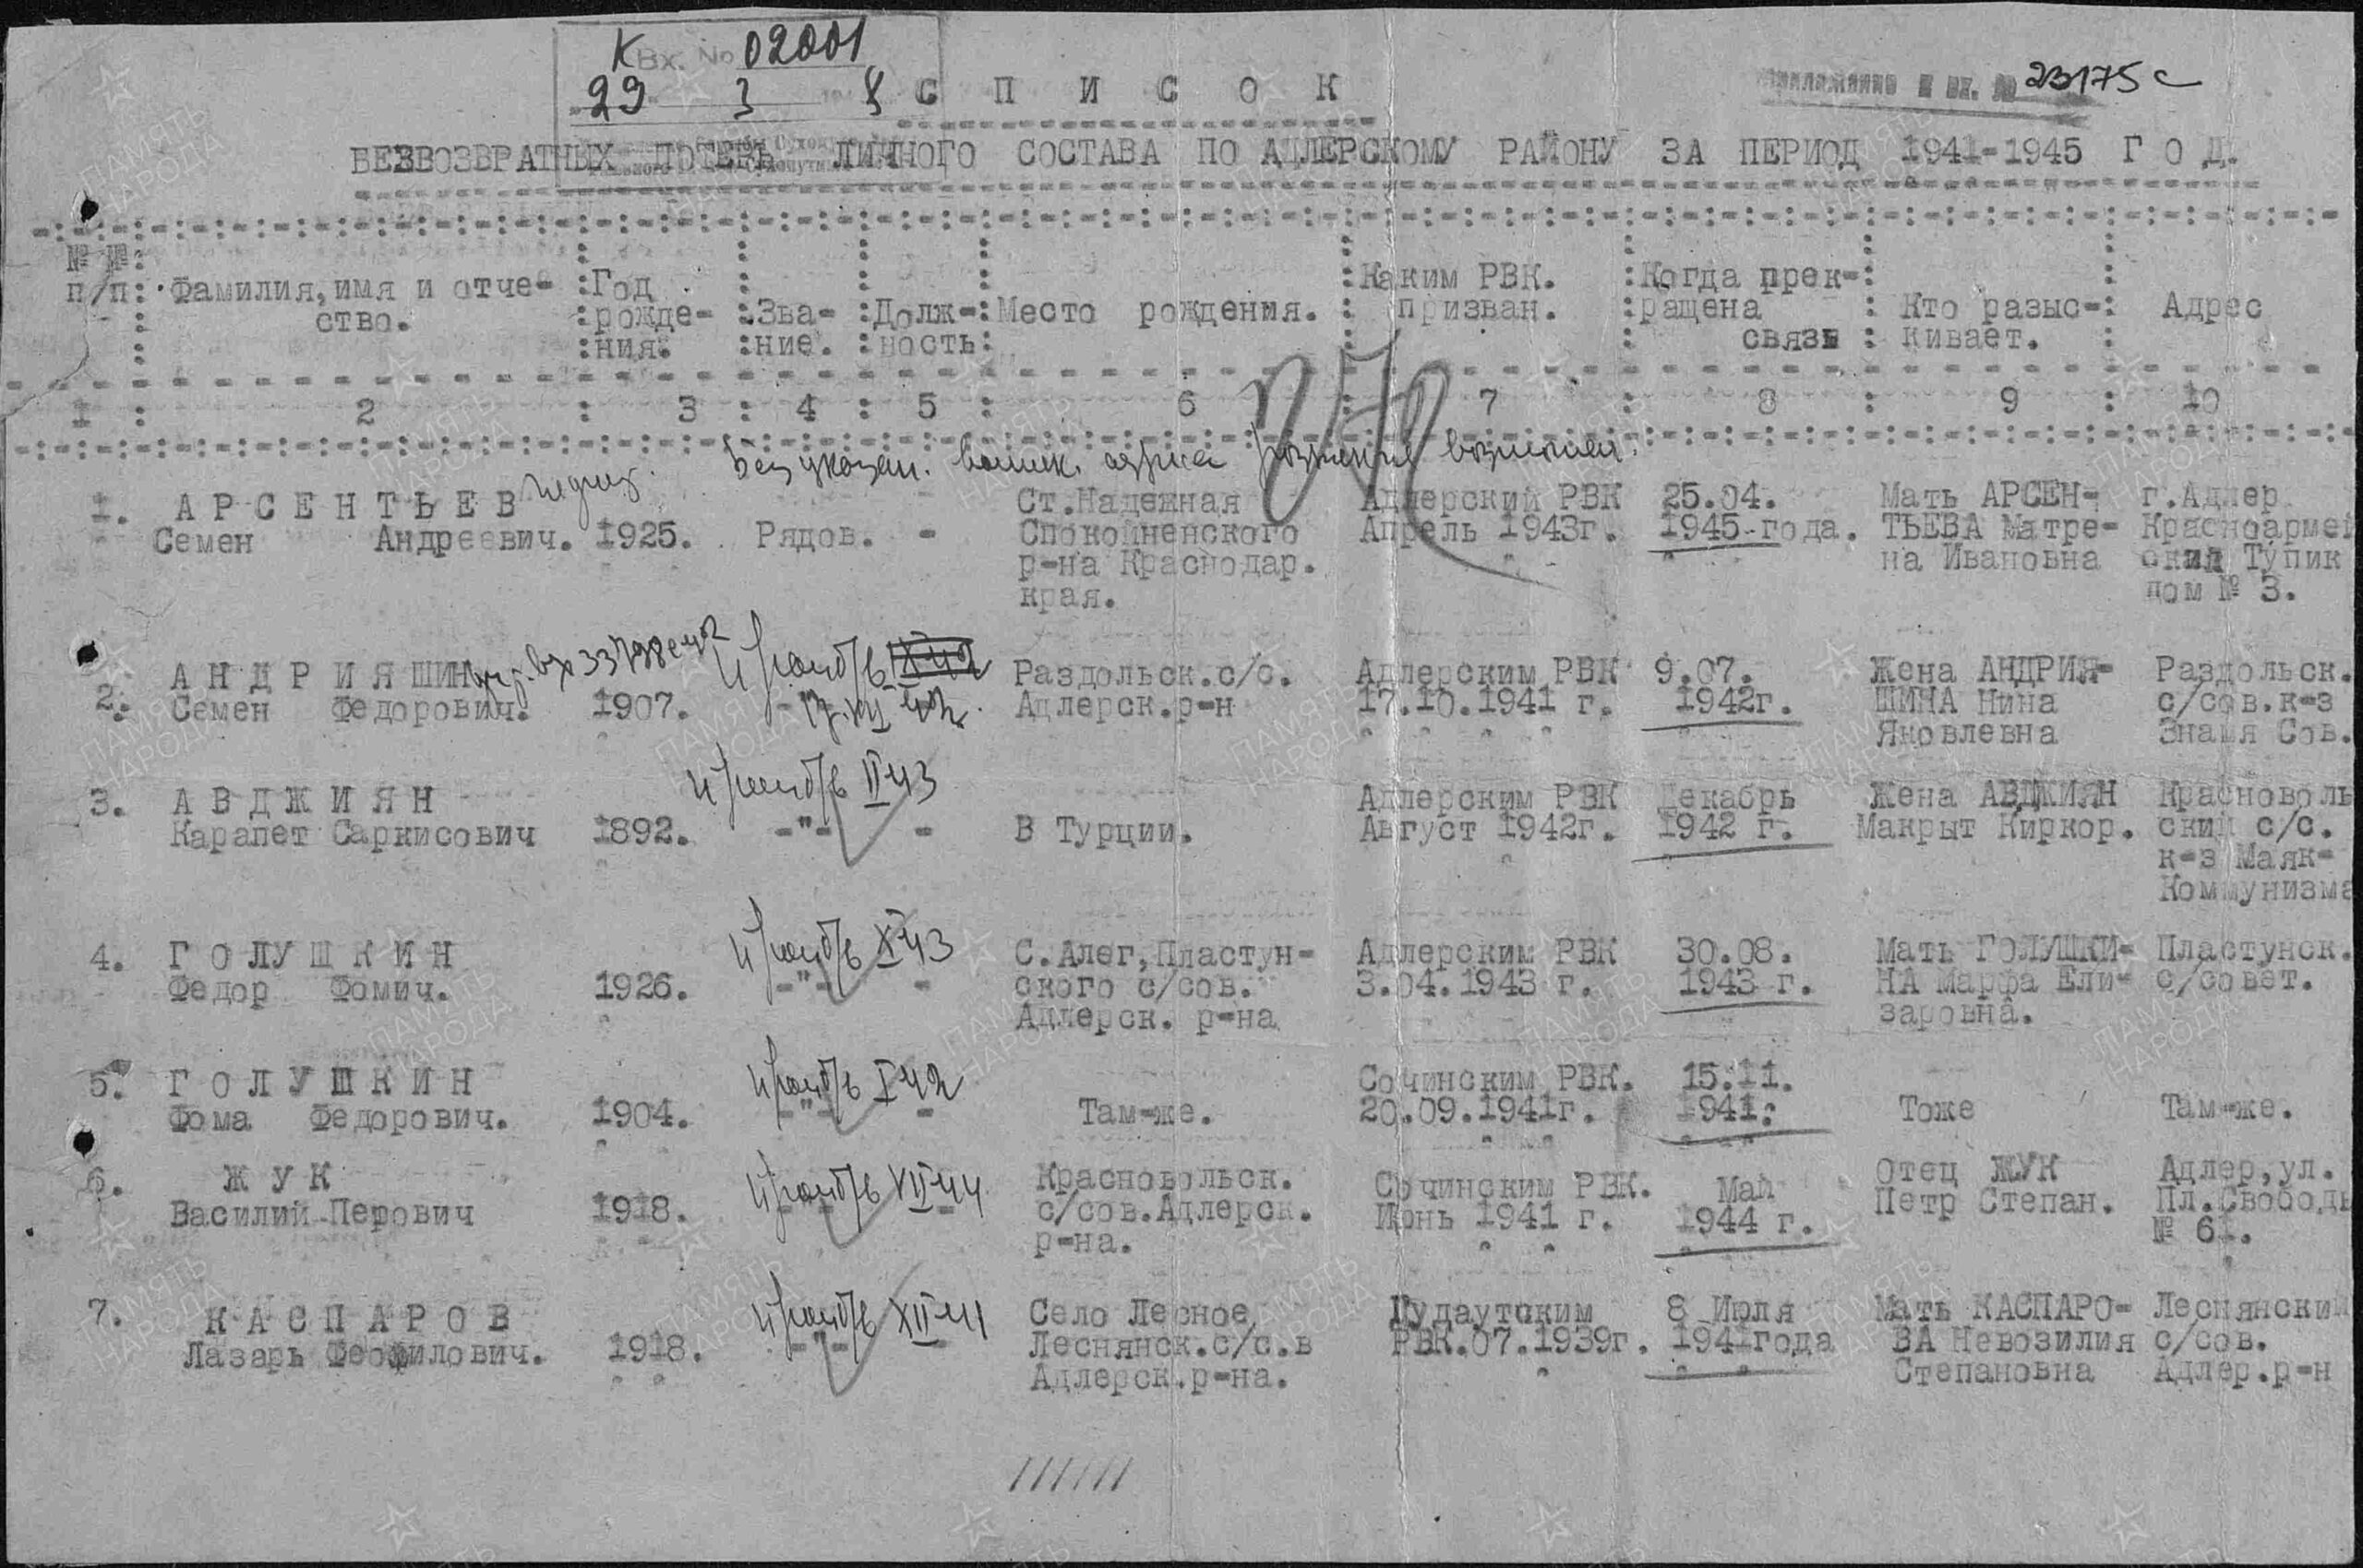 К Вх. № 02001
29 3
С П И С О К
Приложение к вх. № 23175с
БЕЗВОЗВРАТНЫХ ПОТЕРЬ ЛИЧНОГО СОСТАВА ПО АДЛЕРСКОМУ РАЙОНУ ЗА ПЕРИОД 1941-1945 Г О Д.
№ №
п/п
Фамилия, имя и отче-
ство.
Год
рожде-
ния.
Зва-
ние.
Долж-
ность
Место рождения.
Каким РВК.
призван.
Когда прек-
ращена
связь
Кто разыс-
кивает.
Адрес
1 2 3 4 5 6 7 8 9 10
1. А Р С Е Н Т Ь Е В
Семен Андреевич. 1925. Рядов. -
Ст.Надежная
Спокойненского
р-на Краснодар.
края.
Адлерский РВК
Апрель 1943г.
25.04.
1945-года.
Мать АРСЕН-
ТЬЕВА Матре-
на Ивановна
г.Адлер
Красноармей
ский Тупик
дом № 3.
2. А Н Д Р И Я ШИН
Семен Федорович. 1907. -"-
Раздольск.с/с.
Адлерск.р-н
Адлерским РВК
17.10.1941 г.
9.07.
1942г.
Жена АНДРИЯ-
ШИНА Нина
Яковлевна
Раздольск.
с/сов.к-з
Знамя Сов.
3. А В Д Ж И Я Н
II 43
Карапет Саркисович 1892. -"- -
В Турции.
Адлерским РВК
Август 1942г.
Декабрь
1942 г.
Жена АВДЖИЯН
Макрыт Киркор.
Красноволь
ский с/с.
к-з Маяк-
Коммунизма
4. Г О Л У Ш К И Н
X 43
Федор Фомич. 1926. -"- -
С.Алег,Пластун-
ского с/сов.
Адлерск. р-на
Адлерским РВК
3.04.1943 г.
30.08.
1943 г.
Мать ГОЛУШКИ-
НА Марфа Ели-
заровна.
Пластунск.
с/совет.
5. Г О Л У Ш К И Н
I 42
Фома Федорович. 1904. -"- -
Там-же.
Сочинским РВК.
20.09.1941г.
15.11.
1941.
Тоже
Там-же.
6. Ж У К
VII 44
Василий Петрович 1918. -
Красновольск.
с/сов.Адлерск.
р-на.
Сочинским РВК.
Июнь 1941 г.
Май
1944 г.
Отец ЖУК
Петр Степан.
Адлер,ул.
Пл.Свободы
№ 61.
7. К А С П А Р О В
XII 41
Лазарь Феофилович. 1918. -"- -
Село Лесное
Леснянск.с/с.в
Адлерск.р-на.
Гудаутским
РВК.07.1939г.
8 Июля
1941года
Мать КАСПАРО-
ВА Невозилия
Степановна
Леснянский
с/сов.
Адлер.р-н